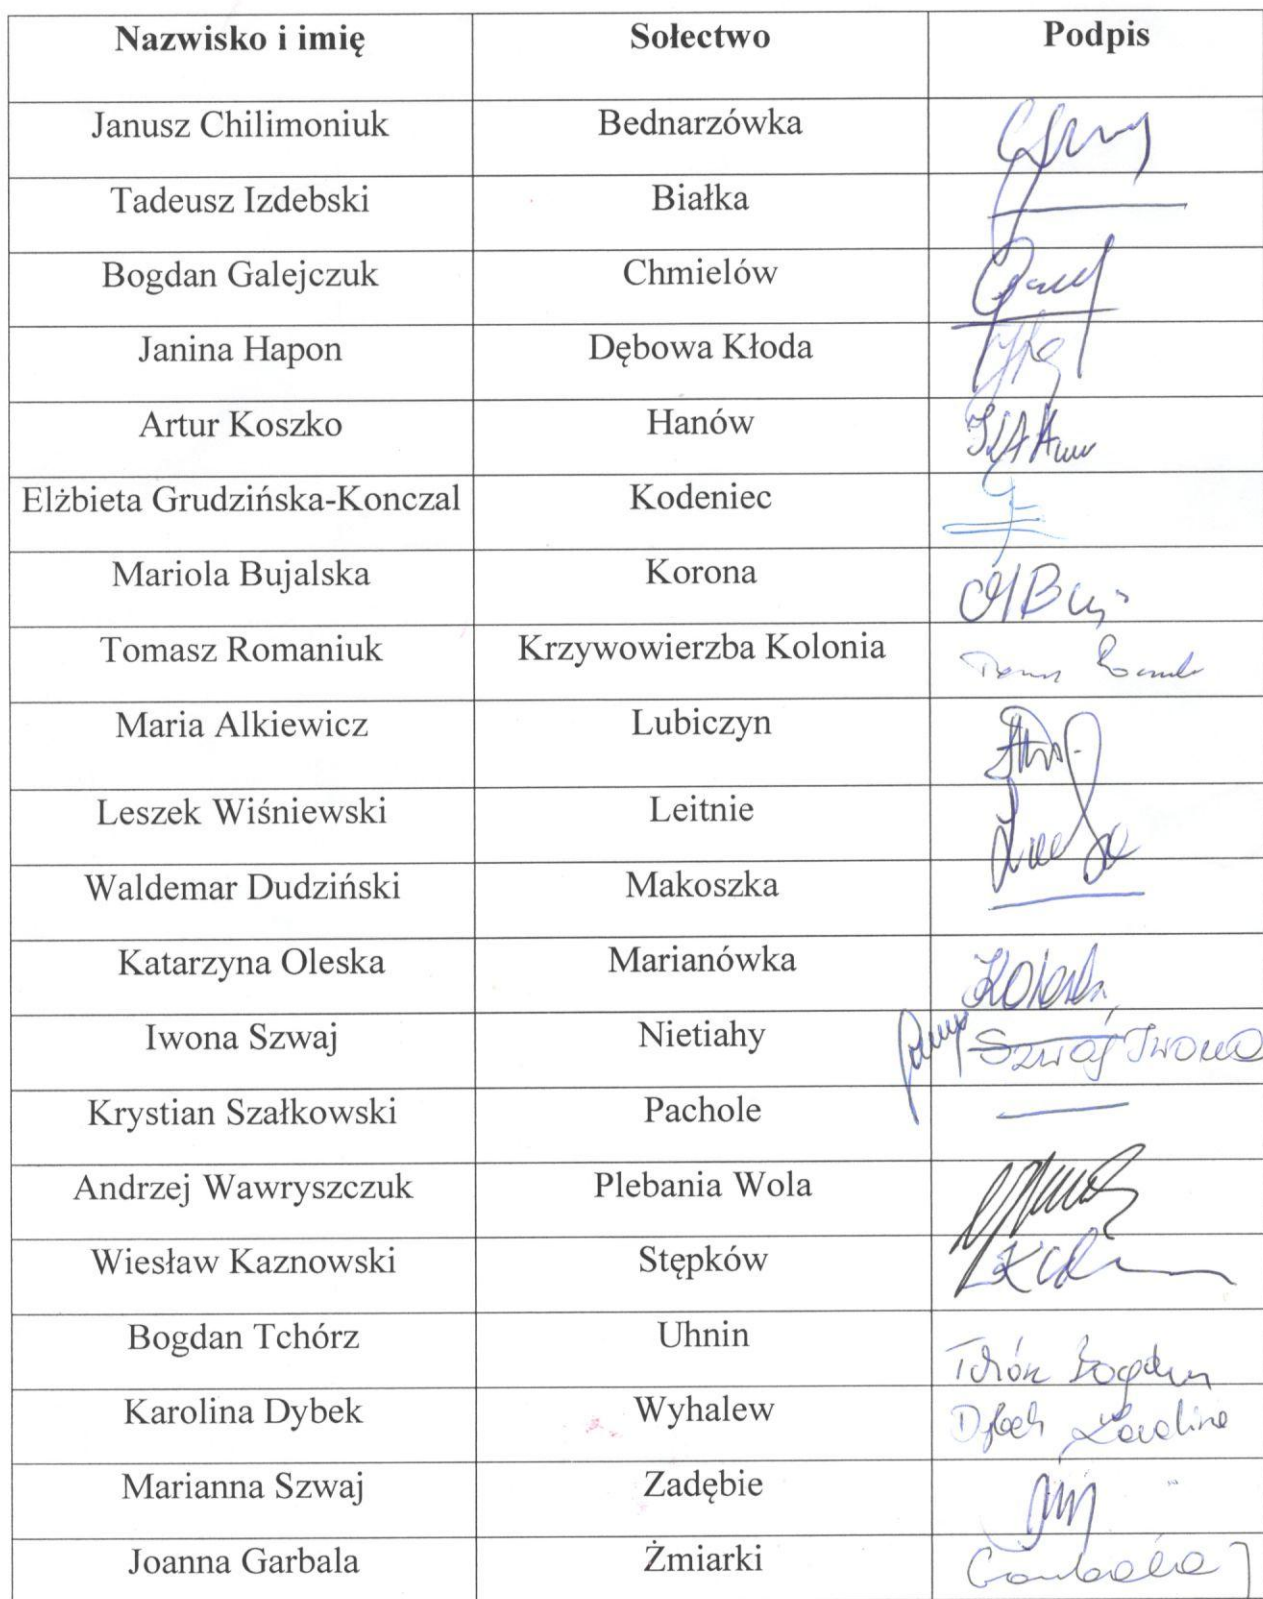 Nazwisko i imię Sołectwo Podpis
Janusz Chilimoniuk Bednarzówka
Tadeusz Izdebski Białka
Bogdan Galejczuk Chmielów
Janina Hapon Dębowa Kłoda
Artur Koszko Hanów
Elżbieta Grudzińska-Konczal Kodeniec
Mariola Bujalska Korona
Tomasz Romaniuk Krzywowierzba Kolonia
Maria Alkiewicz Lubiczyn
Leszek Wiśniewski Leitnie
Waldemar Dudziński Makoszka
Katarzyna Oleska Marianówka
Iwona Szwaj Nietiahy Szwaj Iwona
Krystian Szałkowski Pachole
Andrzej Wawryszczuk Plebania Wola
Wiesław Kaznowski Stępków
Bogdan Tchórz Uhnin Tchórz Bogdan
Karolina Dybek Wyhalew Dybek Karolina
Marianna Szwaj Zadębie
Joanna Garbala Żmiarki Garbala J